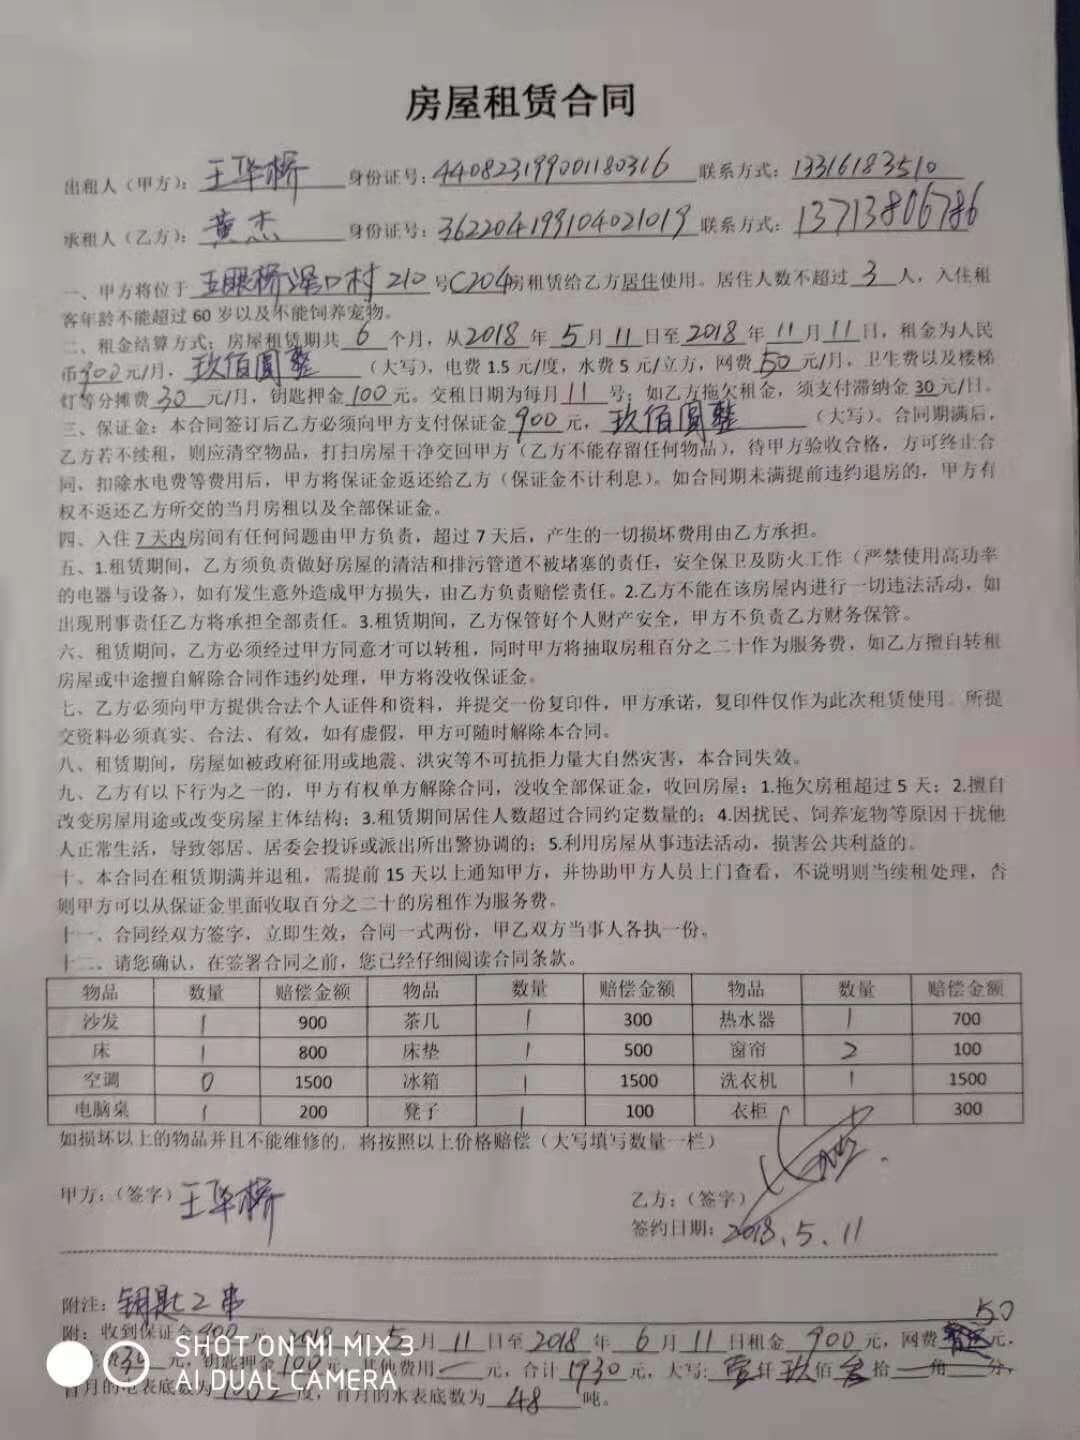 房屋租赁合同
出租人（甲方）：王华桥 身份证号：440823199001180316 联系方式：13316183510
承租人（乙方）：黄杰 身份证号：362204199104021019 联系方式：13713806786
一、甲方将位于 五眼桥滘口村210号C204房租赁给乙方居住使用。居住人数不超过 3 人，入住租
客年龄不能超过 60 岁以及不能饲养宠物。
二、租金结算方式：房屋租赁期共 6 个月，从2018 年 5月 11 日至 2018 年 11 月 11 日，租金为人民
币900元/月，玖佰圆整（大写），电费 1.5 元/度，水费 5 元/立方，网费50元/月，卫生费以及楼梯
灯等分摊费 30 元/月，钥匙押金100元。交租日期为每月 11 号；如乙方拖欠租金，须支付滞纳金 30 元/日。
三、保证金：本合同签订后乙方必须向甲方支付保证金 900 元，玖佰圆整（大写）。合同期满后，
乙方若不续租，则应清空物品，打扫房屋干净交回甲方（乙方不能存留任何物品），待甲方验收合格，方可终止合
同、扣除水电费等费用后，甲方将保证金返还给乙方（保证金不计利息）。如合同期未满提前违约退房的，甲方有
权不返还乙方所交的当月房租以及全部保证金。
四、入住 7 天内房间有任何问题由甲方负责，超过 7 天后，产生的一切损坏费用由乙方承担。
五、1.租赁期间，乙方须负责做好房屋的清洁和排污管道不被堵塞的责任，安全保卫及防火工作（严禁使用高功率
的电器与设备），如有发生意外造成甲方损失，由乙方负责赔偿责任。2.乙方不能在该房屋内进行一切违法活动，如
出现刑事责任乙方将承担全部责任。3.租赁期间，乙方保管好个人财产安全，甲方不负责乙方财务保管。
六、租赁期间，乙方必须经过甲方同意才可以转租，同时甲方将抽取房租百分之二十作为服务费，如乙方擅自转租
房屋或中途擅自解除合同作违约处理，甲方将没收保证金。
七、乙方必须向甲方提供合法个人证件和资料，并提交一份复印件，甲方承诺，复印件仅作为此次租赁使用。所提
交资料必须真实、合法、有效，如有虚假，甲方可随时解除本合同。
八、租赁期间，房屋如被政府征用或地震、洪灾等不可抗拒力量大自然灾害，本合同失效。
九、乙方有以下行为之一的，甲方有权单方解除合同，没收全部保证金，收回房屋：1.拖欠房租超过 5 天；2.擅自
改变房屋用途或改变房屋主体结构；3.租赁期间居住人数超过合同约定数量的；4.因扰民、饲养宠物等原因干扰他
人正常生活，导致邻居、居委会投诉或派出所出警协调的；5.利用房屋从事违法活动，损害公共利益的。
十、本合同在租赁期满并退租，需提前 15 天以上通知甲方，并协助甲方人员上门查看，不说明则当续租处理，否
则甲方可以从保证金里面收取百分之二十的房租作为服务费。
十一、合同经双方签字，立即生效，合同一式两份，甲乙双方当事人各执一份。
十二、请您确认，在签署合同之前，您已经仔细阅读合同条款。
物品 数量 赔偿金额 物品 数量 赔偿金额 物品 数量 赔偿金额
沙发 1 900 茶几 1 300 热水器 1 700
床 1 800 床垫 1 500 窗帘 2 100
空调 0 1500 冰箱 1 1500 洗衣机 1 1500
电脑桌 1 200 凳子 1 100 衣柜 1 300
如损坏以上的物品并且不能维修的，将按照以上价格赔偿（大写填写数量一栏）
甲方：（签字）王华桥 乙方：（签字）
签约日期：2018.5.11
附注：钥匙2串
附：收到保证金900元，2018年5月 11 日至2018 年 6 月 11 日租金 900 元，网费 50 元，
30 元，钥匙押金100元，其他费用 一 元，合计1930元，大写：壹仟玖佰叁拾 一 角 一 分，
首月的电表底数为 1002 度，首月的水表底数为 48 吨。
SHOT ON MI MIX 3
AI DUAL CAMERA